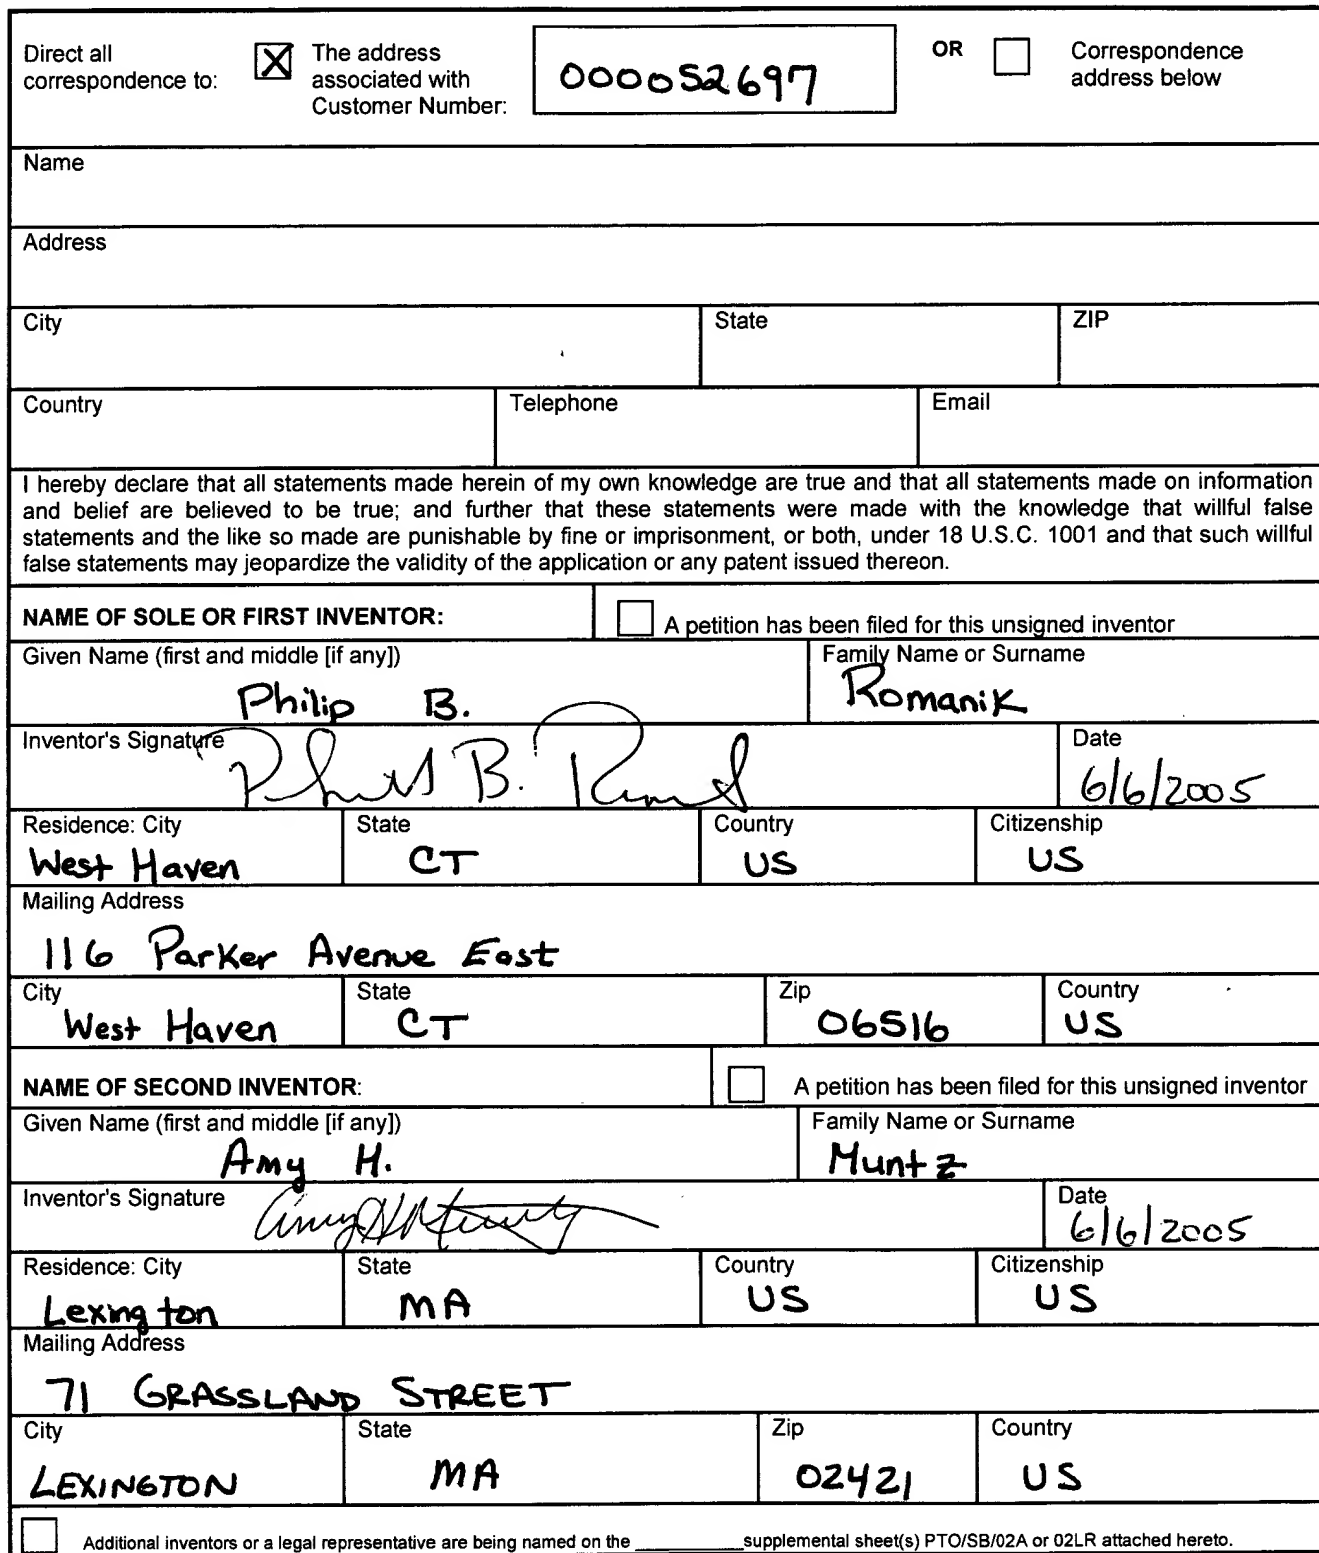 Direct all
correspondence to:
The address
associated with
Customer Number:
000052697
OR
Correspondence
address below
Name
Address
City State ZIP
Country Telephone Email
I hereby declare that all statements made herein of my own knowledge are true and that all statements made on information
and belief are believed to be true; and further that these statements were made with the knowledge that willful false
statements and the like so made are punishable by fine or imprisonment, or both, under 18 U.S.C. 1001 and that such willful
false statements may jeopardize the validity of the application or any patent issued thereon.
NAME OF SOLE OR FIRST INVENTOR: A petition has been filed for this unsigned inventor
Given Name (first and middle [if any]) Family Name or Surname
Philip B. Romanik
Inventor's Signature Date
6/6/2005
Residence: City State Country Citizenship
West Haven CT US US
Mailing Address
116 Parker Avenue East
City State Zip Country
West Haven CT 06516 US
NAME OF SECOND INVENTOR: A petition has been filed for this unsigned inventor
Given Name (first and middle [if any]) Family Name or Surname
Amy H. Muntz
Inventor's Signature Date
6/6/2005
Residence: City State Country Citizenship
Lexington MA US US
Mailing Address
71 GRASSLAND STREET
City State Zip Country
LEXINGTON MA 02421 US
Additional inventors or a legal representative are being named on the __________ supplemental sheet(s) PTO/SB/02A or 02LR attached hereto.